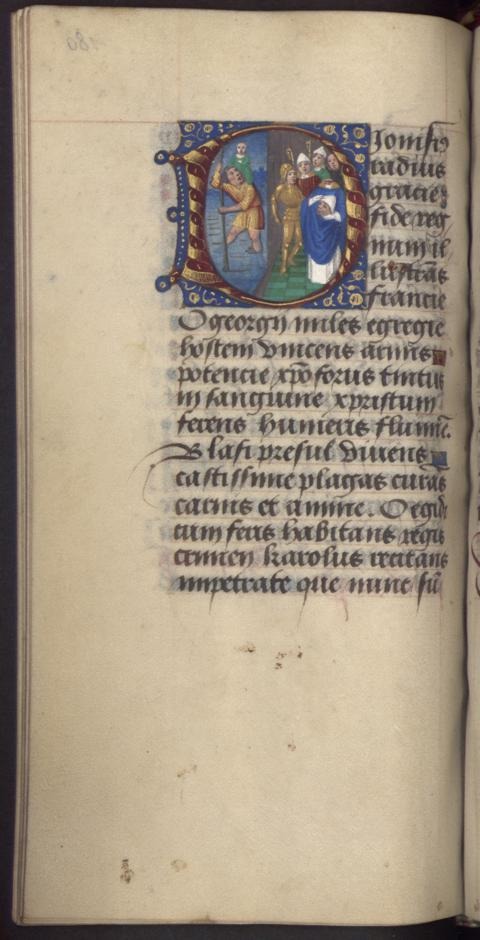 180
Dionisi9
radius
gracie
fide reg
num il
lustrās
francie
O georgij miles egregie
hostem vincens armis
potencie xp̄oforus tinctus
in sanguine xpristum
ferens humeris flumīe.
Blasi presul viuens
castissime plagas curās
carnis et anime. O egidi
cum feris habitans regis
crimen karolus recitans
impetrate que nunc sū